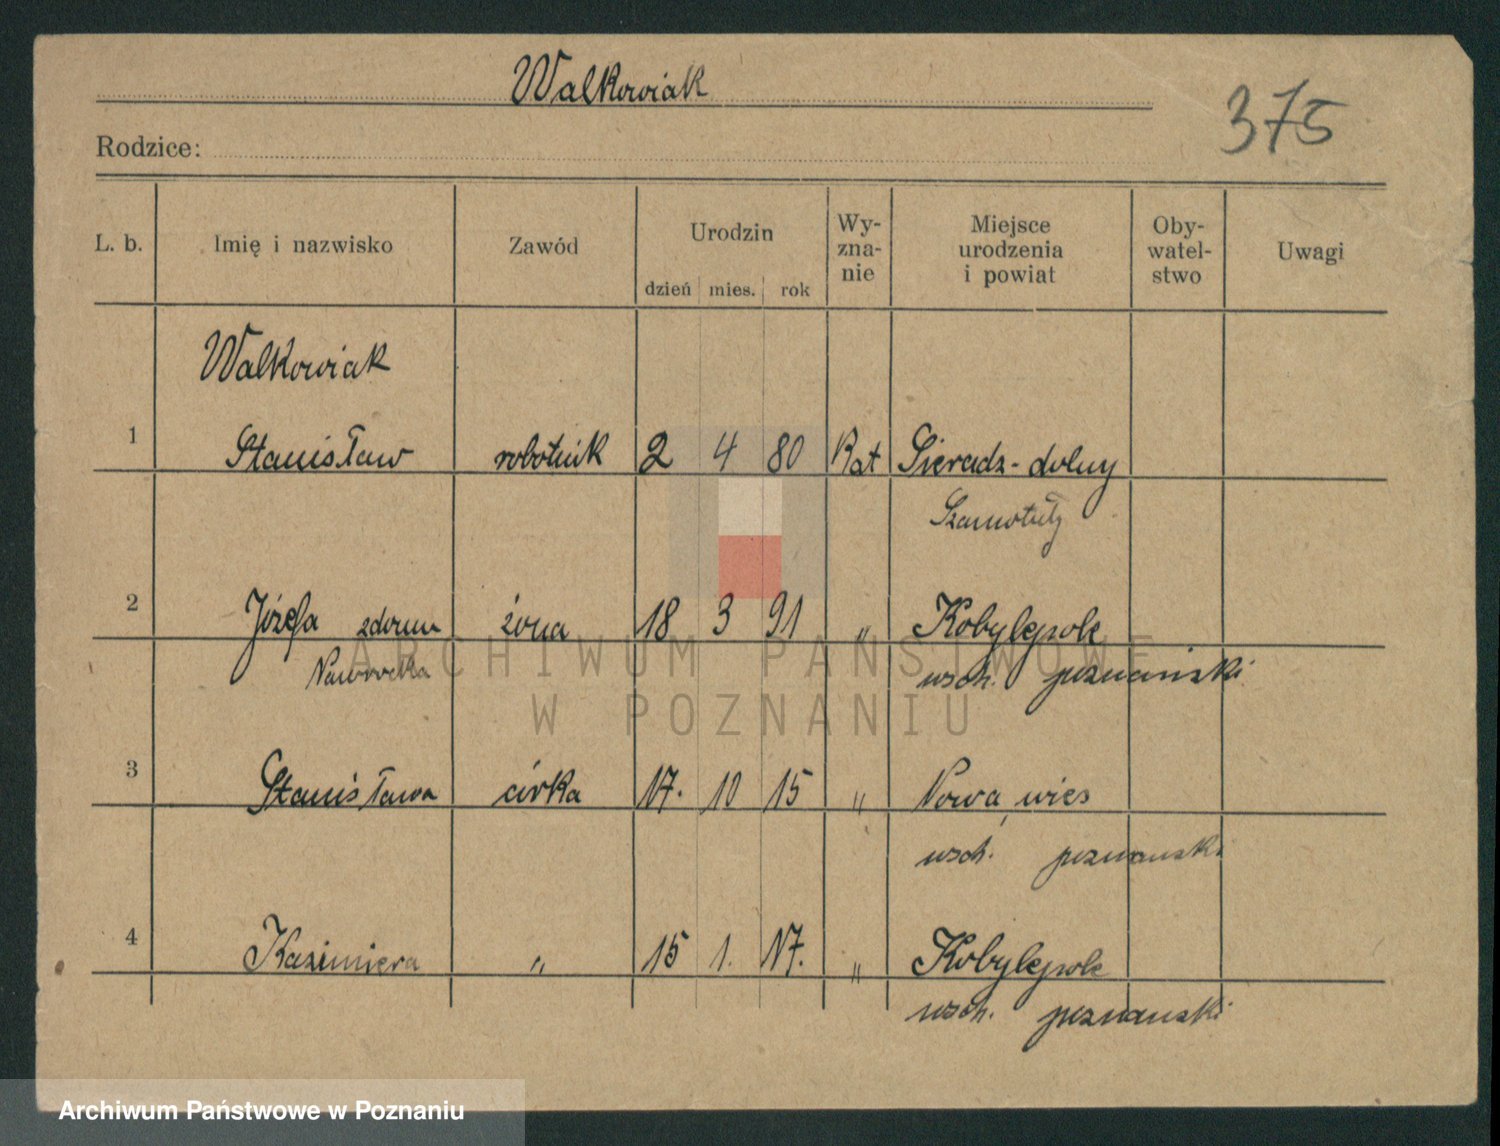 Walkowiak
375
Rodzice:
L. b. Imię i nazwisko Zawód Urodzin dzień mies. rok Wy-zna-nie Miejsce urodzenia i powiat Oby-watel-stwo Uwagi
Walkowiak
1 Stanisław robotnik 2 4 80 Kat Sieradz-dolny
Szamotuły
2 Józefa zdomu żona 18 3 91 " Kobylepole
Nawrocka wsch. poznański
3 Stanisława córka 17. 10 15 " Nowa wies
wsch. poznanski
4 Kazimiera " 15 1. 17. " Kobylepole
wsch. poznanski
ARCHIWUM PAŃSTWOWE
W POZNANIU
Archiwum Państwowe w Poznaniu